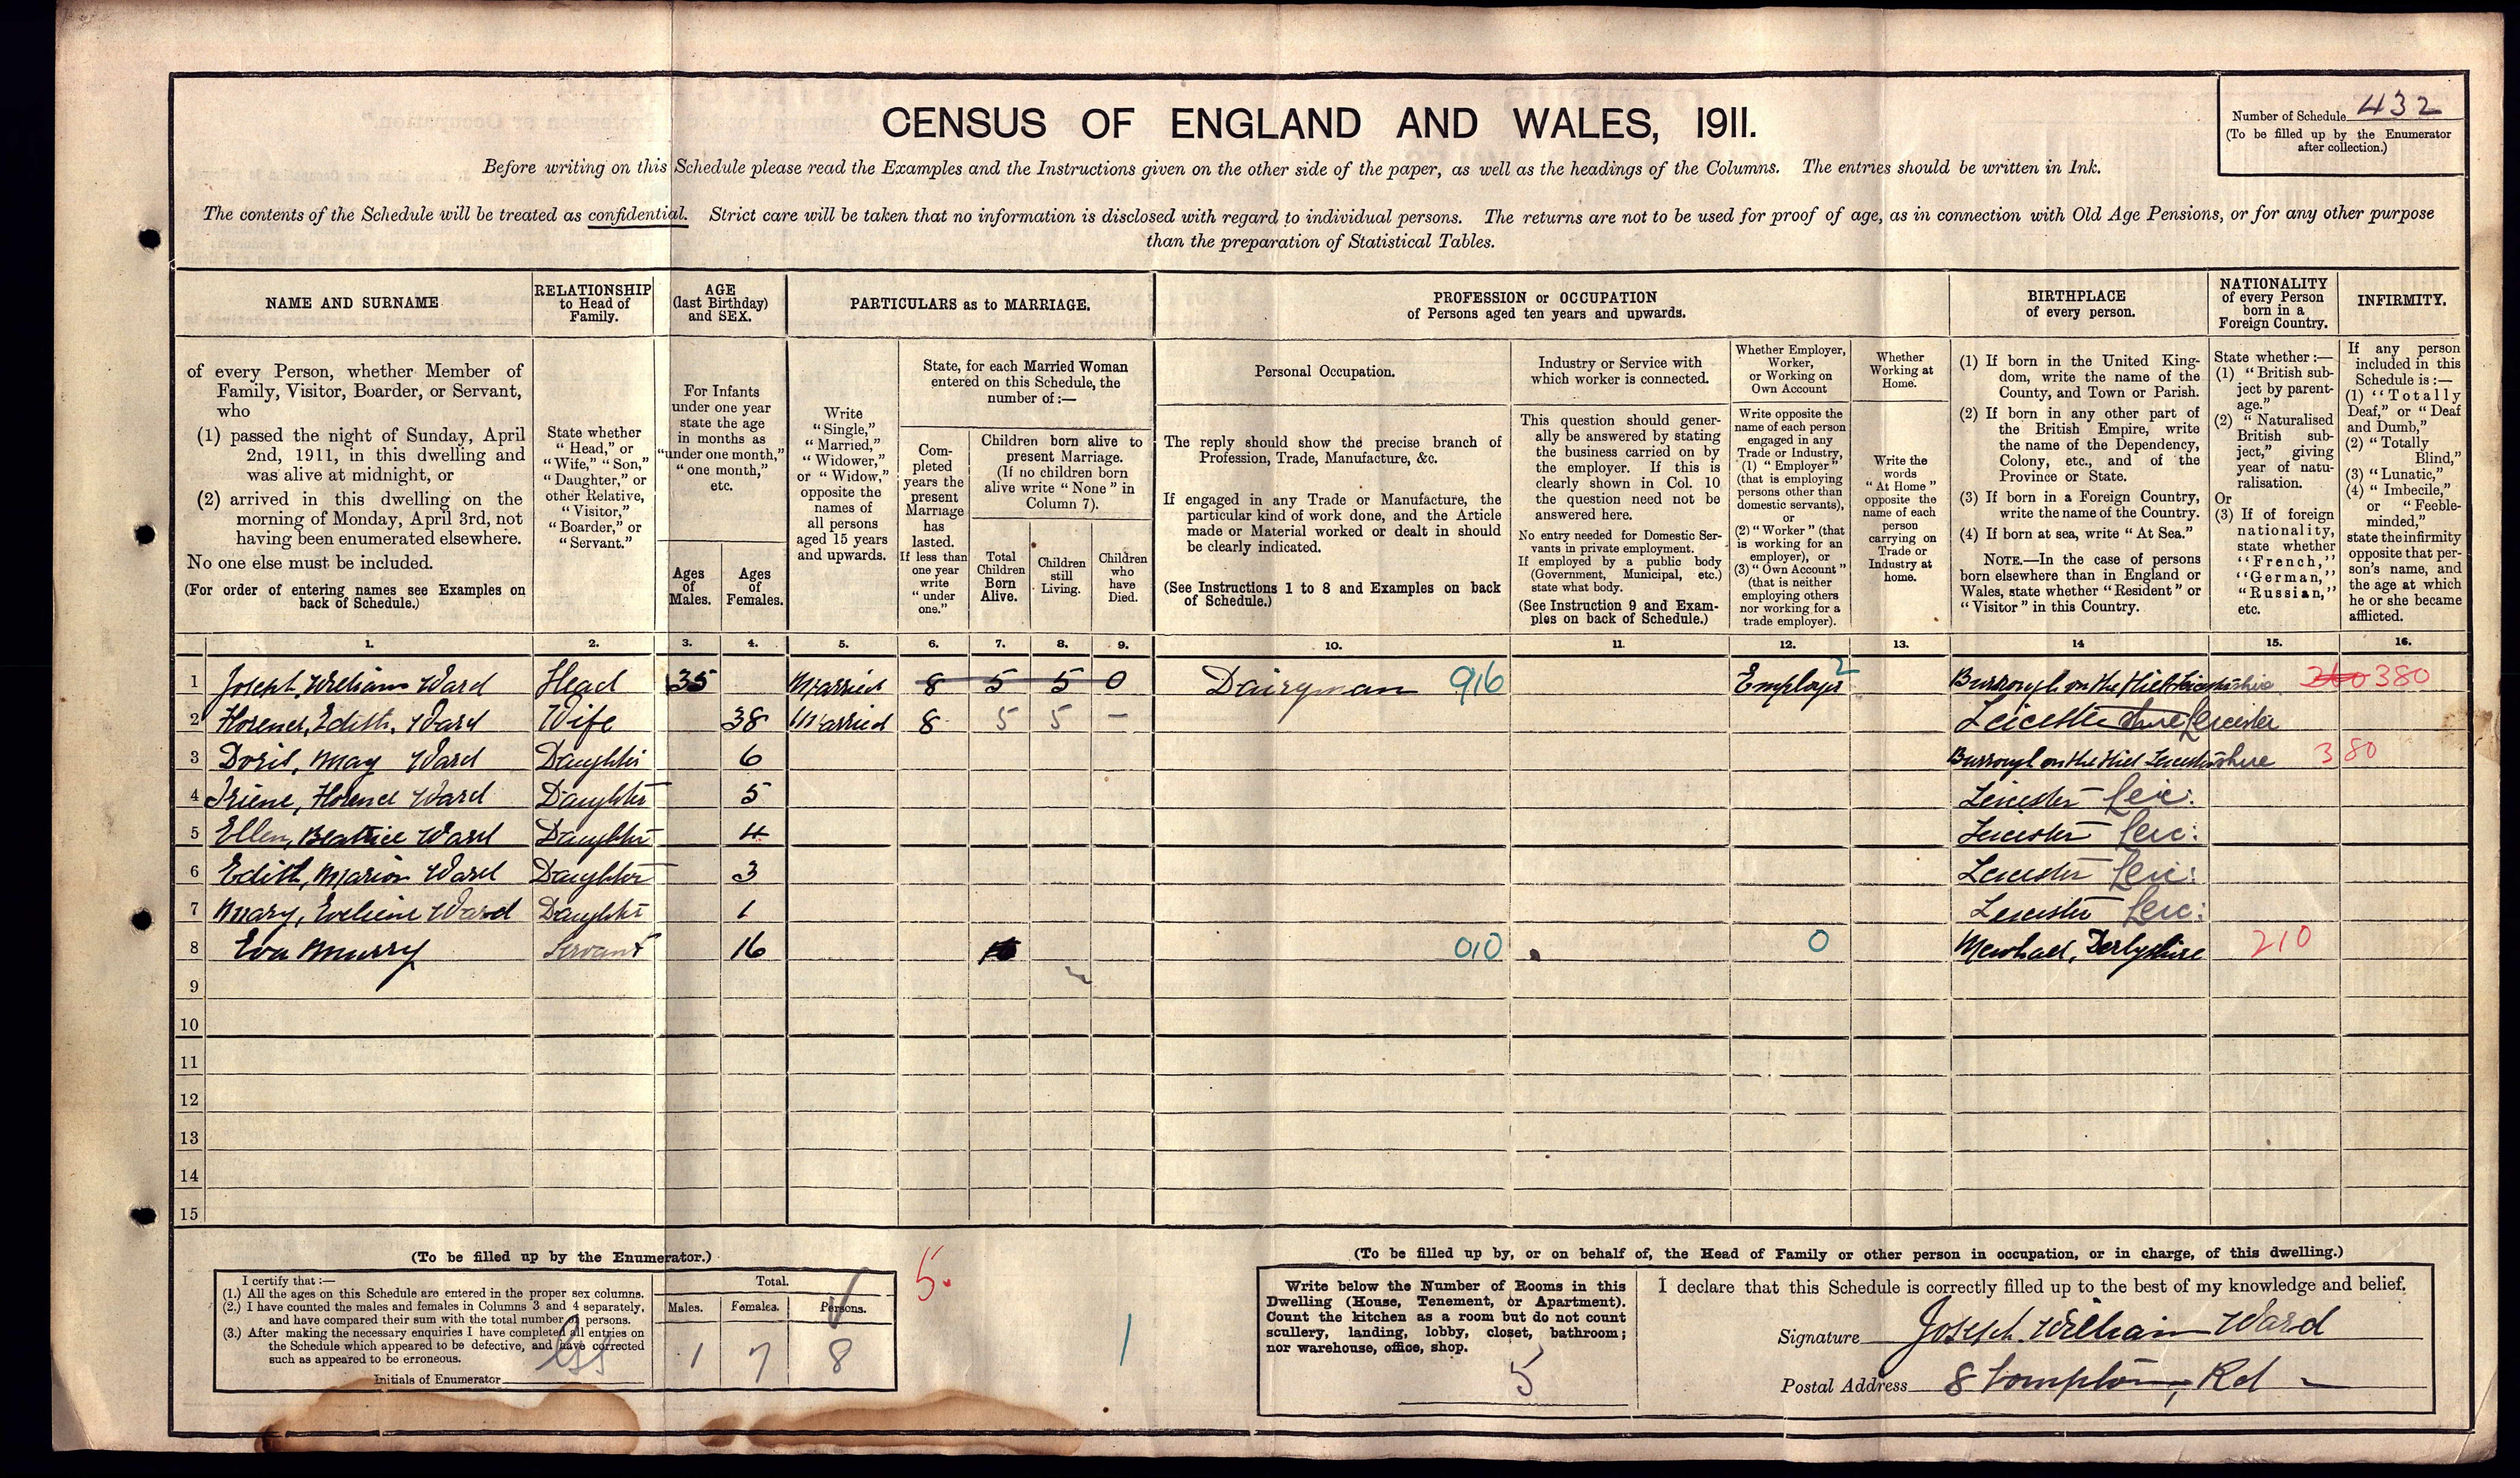 CENSUS OF ENGLAND AND WALES, 1911.
Number of Schedule 432
(To be filled up by the Enumerator after collection.)
Before writing on this Schedule please read the Examples and the Instructions given on the other side of the paper, as well as the headings of the Columns. The entries should be written in Ink.
The contents of the Schedule will be treated as confidential. Strict care will be taken that no information is disclosed with regard to individual persons. The returns are not to be used for proof of age, as in connection with Old Age Pensions, or for any other purpose
than the preparation of Statistical Tables.
NAME AND SURNAME
of every Person, whether Member of
Family, Visitor, Boarder, or Servant,
who
(1) passed the night of Sunday, April
2nd, 1911, in this dwelling and
was alive at midnight, or
(2) arrived in this dwelling on the
morning of Monday, April 3rd, not
having been enumerated elsewhere.
No one else must be included.
(For order of entering names see Examples on
back of Schedule.)
RELATIONSHIP
to Head of
Family.
State whether
"Head," or
"Wife," "Son,"
"Daughter," or
other Relative,
"Visitor,"
"Boarder," or
"Servant."
AGE
(last Birthday)
and SEX.
For Infants
under one year
state the age
in months as
"under one month,"
"one month,"
etc.
Ages
of
Males.
Ages
of
Females.
PARTICULARS as to MARRIAGE.
Write
"Single,"
"Married,"
"Widower,"
or "Widow,"
opposite the
names of
all persons
aged 15 years
and upwards.
State, for each Married Woman
entered on this Schedule, the
number of:—
Com-
pleted
years the
present
Marriage
has
lasted.
If less than
one year
write
"under
one."
Children born alive to
present Marriage.
(If no children born
alive write "None" in
Column 7).
Total
Children
Born
Alive.
Children
still
Living.
Children
who
have
Died.
PROFESSION or OCCUPATION
of Persons aged ten years and upwards.
Personal Occupation.
The reply should show the precise branch of
Profession, Trade, Manufacture, &c.
If engaged in any Trade or Manufacture, the
particular kind of work done, and the Article
made or Material worked or dealt in should
be clearly indicated.
(See Instructions 1 to 8 and Examples on back
of Schedule.)
Industry or Service with
which worker is connected.
This question should gener-
ally be answered by stating
the business carried on by
the employer. If this is
clearly shown in Col. 10
the question need not be
answered here.
No entry needed for Domestic Ser-
vants in private employment.
If employed by a public body
(Government, Municipal, etc.)
state what body.
(See Instruction 9 and Exam-
ples on back of Schedule.)
Whether Employer,
Worker,
or Working on
Own Account
Write opposite the
name of each person
engaged in any
Trade or Industry,
(1) "Employer"
(that is employing
persons other than
domestic servants),
or
(2) "Worker" (that
is working for an
employer), or
(3) "Own Account"
(that is neither
employing others
nor working for a
trade employer).
Whether
Working at
Home.
Write the
words
"At Home"
opposite the
name of each
person
carrying on
Trade or
Industry at
home.
BIRTHPLACE
of every person.
(1) If born in the United King-
dom, write the name of the
County, and Town or Parish.
(2) If born in any other part of
the British Empire, write
the name of the Dependency,
Colony, etc., and of the
Province or State.
(3) If born in a Foreign Country,
write the name of the Country.
(4) If born at sea, write "At Sea."
NOTE.—In the case of persons
born elsewhere than in England or
Wales, state whether "Resident" or
"Visitor" in this Country.
NATIONALITY
of every Person
born in a
Foreign Country.
State whether:—
(1) "British sub-
ject by parent-
age."
(2) "Naturalised
British sub-
ject," giving
year of natu-
ralisation.
Or
(3) If of foreign
nationality,
state whether
"French,"
"German,"
"Russian,"
etc.
INFIRMITY.
If any person
included in this
Schedule is:—
(1) "Totally
Deaf," or "Deaf
and Dumb,"
(2) "Totally
Blind,"
(3) "Lunatic,"
(4) "Imbecile,"
or "Feeble-
minded,"
state the infirmity
opposite that per-
son's name, and
the age at which
he or she became
afflicted.
1. 2. 3. 4. 5. 6. 7. 8. 9. 10. 11. 12. 13. 14 15. 16.
1 Joseph, William Ward Head 35 Married 8 5 5 0 Dairyman 916 Employer 2 Burrough on the Hill Leicestershire 260 380
2 Florence, Edith, Ward Wife 38 Married 8 5 5 — Leicestershire Leicester
3 Doris, May Ward Daughter 6 Burrough on the Hill Leicestershire 380
4 Iriene, Florence Ward Daughter 5 Leicester Leic:
5 Ellen, Beatrice Ward Daughter 4 Leicester Leic:
6 Edith, Marion Ward Daughter 3 Leicester Leic:
7 Mary, Eveline Ward Daughter 1 Leicester Leic:
8 Eva Murry Servant 16 010 0 Derbyshire 210
9
10
11
12
13
14
15
(To be filled up by the Enumerator.)
I certify that:—
(1.) All the ages on this Schedule are entered in the proper sex columns.
(2.) I have counted the males and females in Columns 3 and 4 separately,
and have compared their sum with the total number of persons.
(3.) After making the necessary enquiries I have completed all entries on
the Schedule which appeared to be defective, and have corrected
such as appeared to be erroneous.
Initials of Enumerator
Total.
Males. Females. Persons.
1 7 8
5.
1
(To be filled up by, or on behalf of, the Head of Family or other person in occupation, or in charge, of this dwelling.)
Write below the Number of Rooms in this
Dwelling (House, Tenement, or Apartment).
Count the kitchen as a room but do not count
scullery, landing, lobby, closet, bathroom;
nor warehouse, office, shop.
5
I declare that this Schedule is correctly filled up to the best of my knowledge and belief.
Signature Joseph William Ward
Postal Address 8 Rd